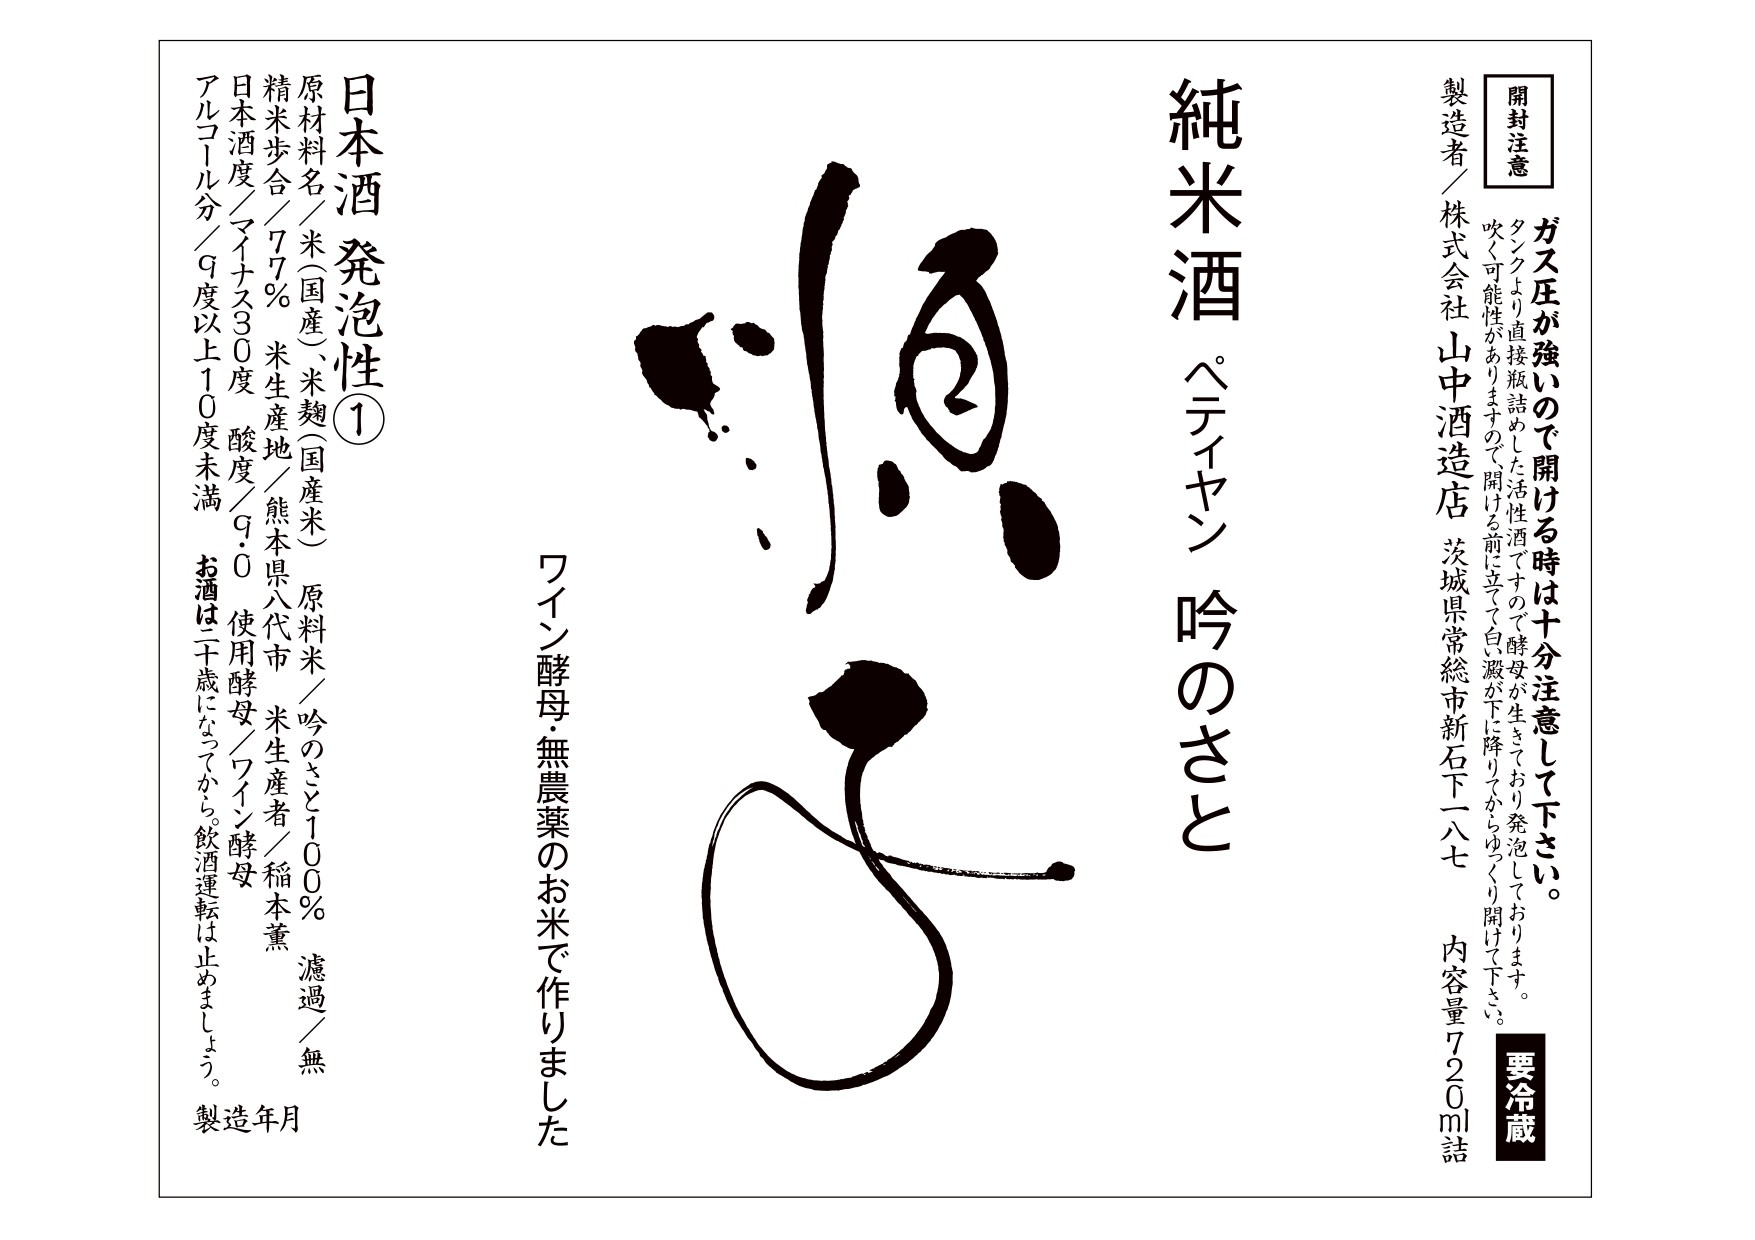 開封注意
ガス圧が強いので開ける時は十分注意して下さい。
タンクより直接瓶詰めした活性酒ですので酵母が生きており発泡しております。
吹く可能性がありますので、開ける前に立てて白い澱が下に降りてからゆっくり開けて下さい。
要冷蔵
製造者／株式会社 山中酒造店 茨城県常総市新石下一八七 内容量720ml詰
純米酒 ペティヤン 吟のさと
順子
ワイン酵母・無農薬のお米で作りました
日本酒 発泡性①
原材料名／米（国産）、米麹（国産米） 原料米／吟のさと100％ 濾過／無
精米歩合／77％ 米生産地／熊本県八代市 米生産者／稲本薫
日本酒度／マイナス30度 酸度／9.0 使用酵母／ワイン酵母
アルコール分／9度以上10度未満 お酒は二十歳になってから。飲酒運転は止めましょう。
製造年月